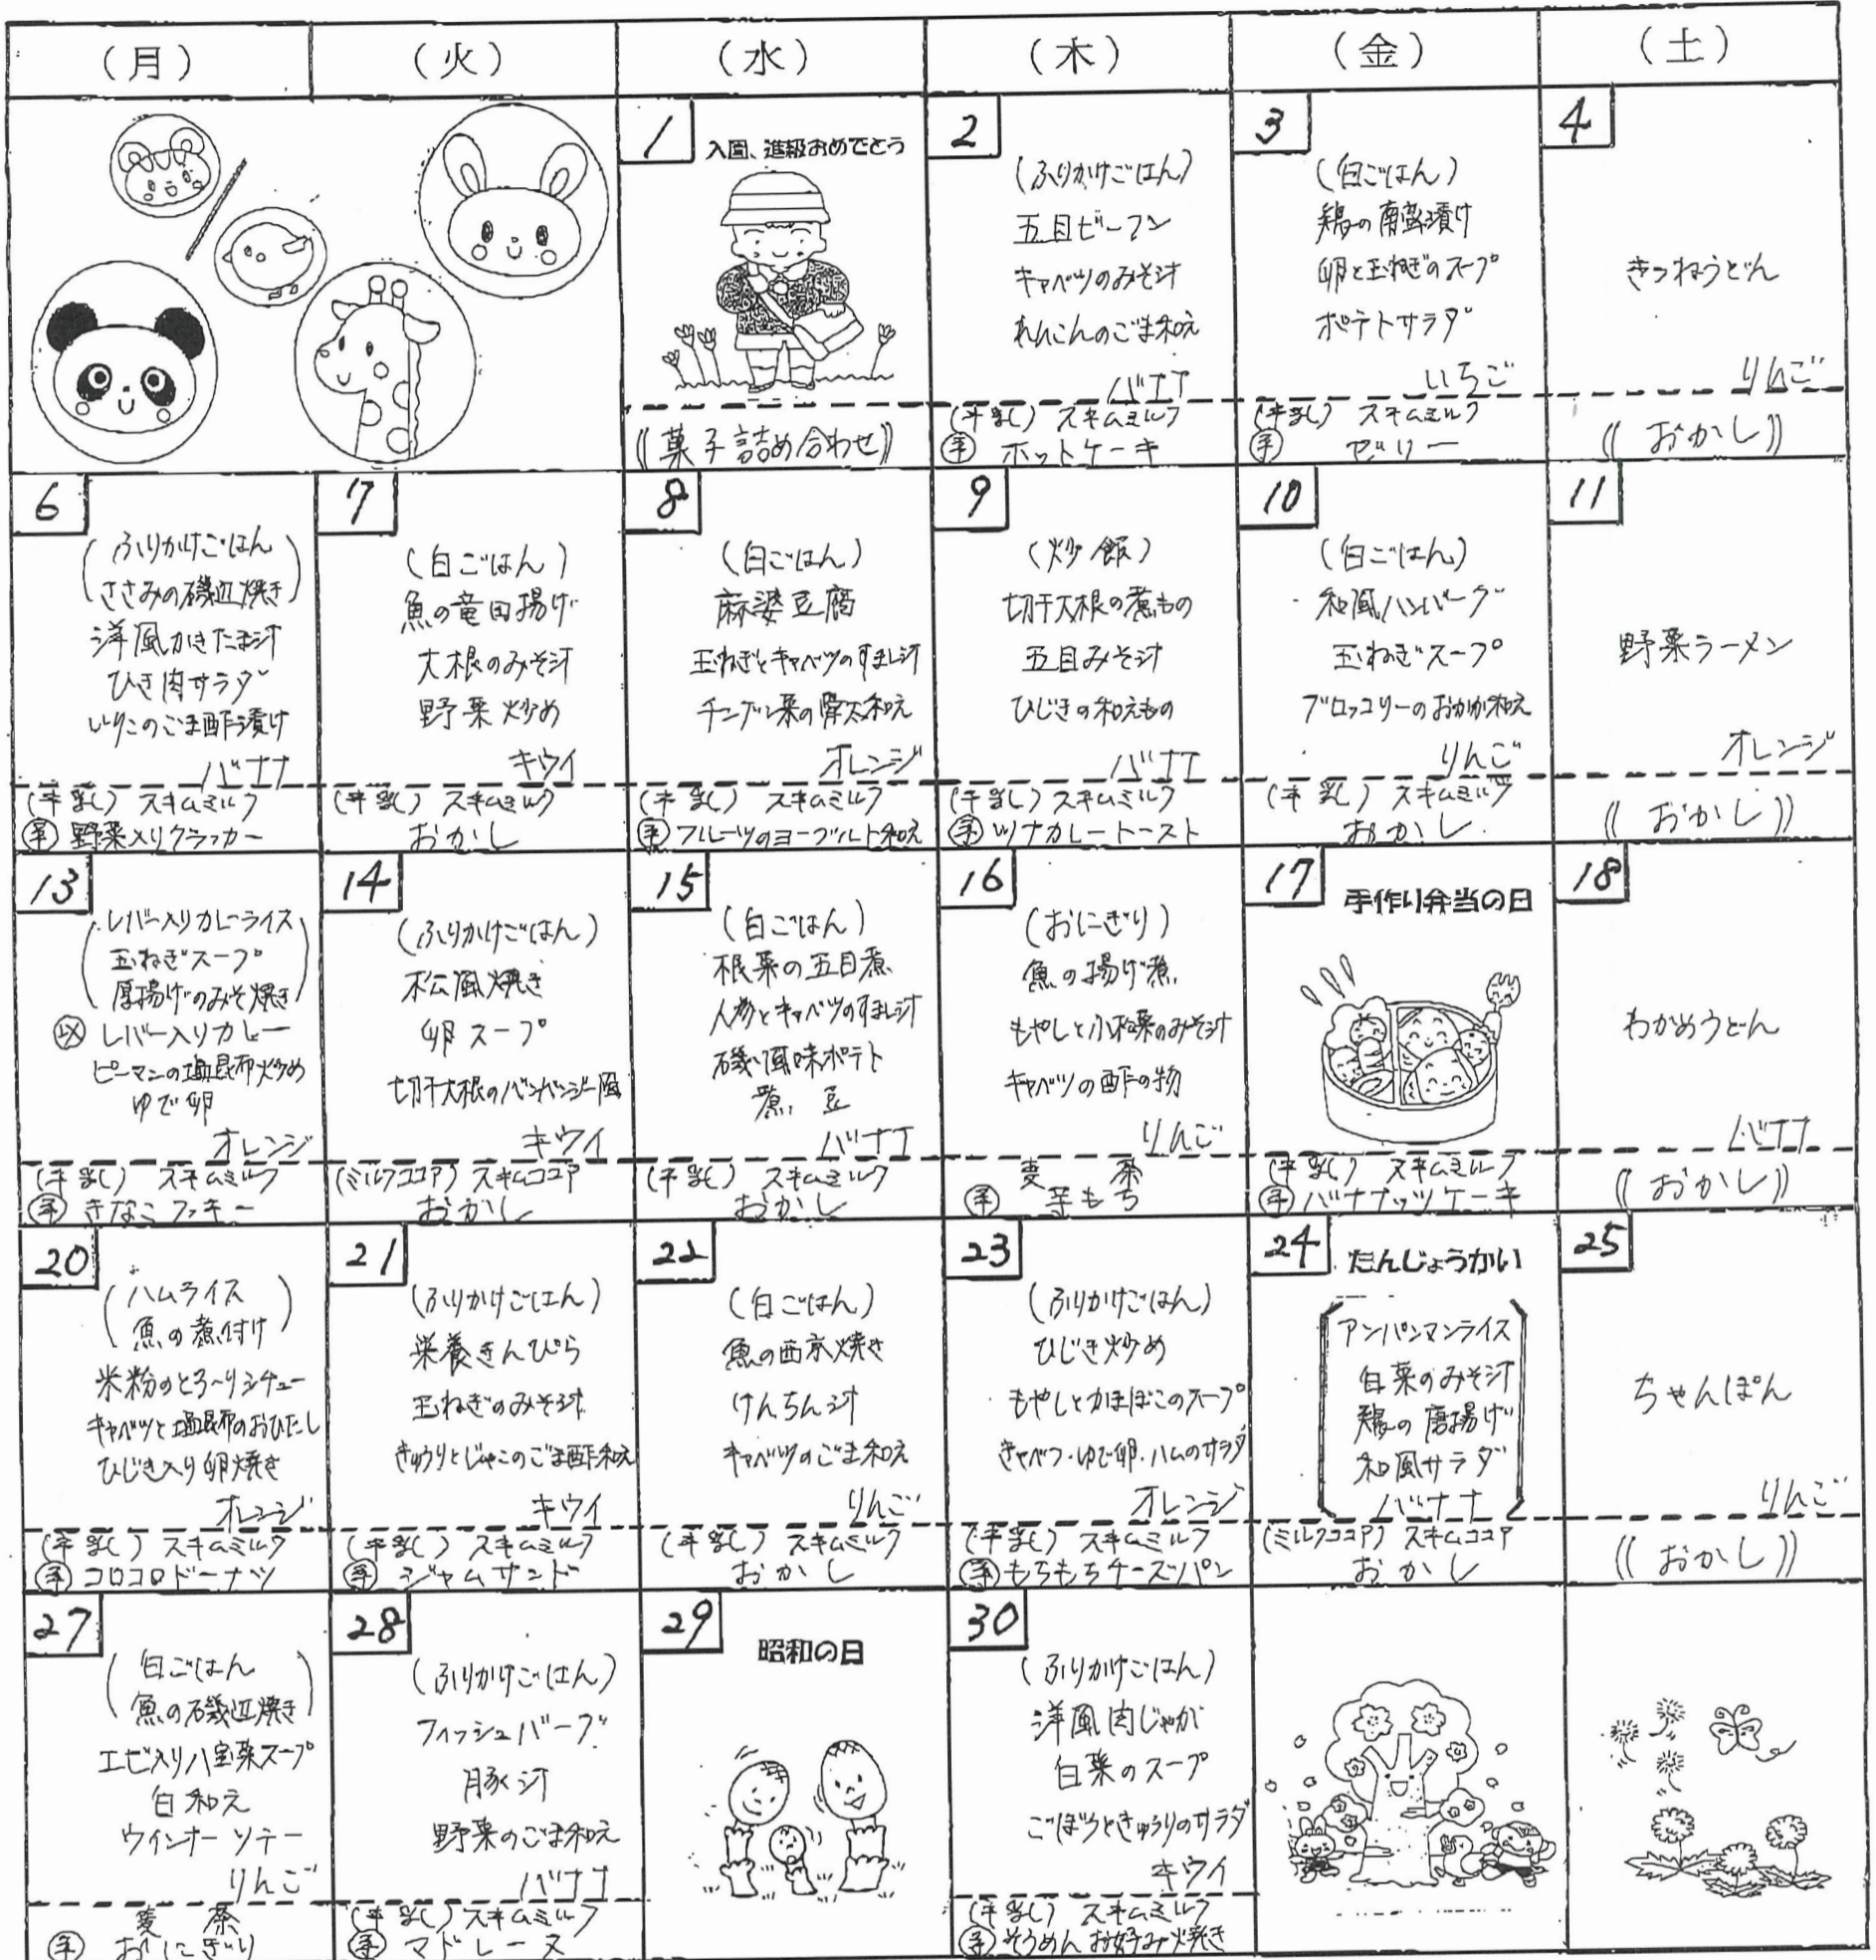 (月)
(火)
(水)
(木)
(金)
(土)
1
入園、進級おめでとう
《菓子詰め合わせ》
2
(ふりかけごはん)
五目ビーフン
キャベツのみそ汁
れんこんのごま和え
バナナ
(牛乳) スキムミルク
㊥ ホットケーキ
3
(白ごはん)
鶏の南蛮漬け
卵と玉ねぎのスープ
ポテトサラダ
いちご
(牛乳) スキムミルク
手 ゼリー
4
きつねうどん
りんご
《おかし》
6
(ふりかけごはん
ささみの磯辺焼き)
洋風かきたま汁
ひき肉サラダ
いりこのごま酢漬け
バナナ
(牛乳) スキムミルク
手 野菜入りクラッカー
7
(白ごはん)
魚の竜田揚げ
大根のみそ汁
野菜炒め
キウイ
(牛乳) スキムミルク
おかし
8
(白ごはん)
麻婆豆腐
玉ねぎとキャベツのすまし汁
チンゲン菜の骨太和え
オレンジ
(牛乳) スキムミルク
手 フルーツのヨーグルト和え
9
(炒飯)
切干大根の煮もの
五目みそ汁
ひじきの和えもの
バナナ
(牛乳) スキムミルク
手 ツナカレートースト
10
(白ごはん)
和風ハンバーグ
玉ねぎスープ
ブロッコリーのおかか和え
りんご
(牛乳) スキムミルク
おかし
11
野菜ラーメン
オレンジ
《おかし》
13
(レバー入りカレーライス
玉ねぎスープ
厚揚げのみそ焼き)
レバー入りカレー
ピーマンの塩昆布炒め
ゆで卵
オレンジ
(牛乳) スキムミルク
手 きなこクッキー
14
(ふりかけごはん)
松風焼き
卵スープ
切干大根のバンバンジー風
キウイ
(ミルクココア) スキムココア
おかし
15
(白ごはん)
根菜の五目煮
人参とキャベツのすまし汁
磯風味ポテト
煮豆
バナナ
(牛乳) スキムミルク
おかし
16
(おにぎり)
魚の揚げ煮
もやしと小松菜のみそ汁
キャベツの酢の物
りんご
麦茶
手 芋もち
17
手作り弁当の日
(牛乳) スキムミルク
手 バナナッツケーキ
18
わかめうどん
バナナ
《おかし》
20
(ハムライス
魚の煮付け)
米粉のとろ～りシチュー
キャベツと塩昆布のおひたし
ひじき入り卵焼き
オレンジ
(牛乳) スキムミルク
手 コロコロドーナツ
21
(ふりかけごはん)
栄養きんぴら
玉ねぎのみそ汁
きゅうりとじゃこのごま酢和え
キウイ
(牛乳) スキムミルク
手 ジャムサンド
22
(白ごはん)
魚の西京焼き
けんちん汁
キャベツのごま和え
りんご
(牛乳) スキムミルク
おかし
23
(ふりかけごはん)
ひじき炒め
もやしとかまぼこのスープ
キャベツ・ゆで卵・ハムのサラダ
オレンジ
(牛乳) スキムミルク
手 もちもちチーズパン
24
たんじょうかい
アンパンマンライス
白菜のみそ汁
鶏の唐揚げ
和風サラダ
バナナ
(ミルクココア) スキムココア
おかし
25
ちゃんぽん
りんご
《おかし》
27
(白ごはん
魚の磯辺焼き)
エビ入り八宝菜スープ
白和え
ウインナーソテー
りんご
麦茶
手 おにぎり
28
(ふりかけごはん)
フィッシュバーグ
豚汁
野菜のごま和え
バナナ
(牛乳) スキムミルク
手 マドレーヌ
29
昭和の日
30
(ふりかけごはん)
洋風肉じゃが
白菜のスープ
ごぼうときゅうりのサラダ
キウイ
(牛乳) スキムミルク
手 そうめんお好み焼き